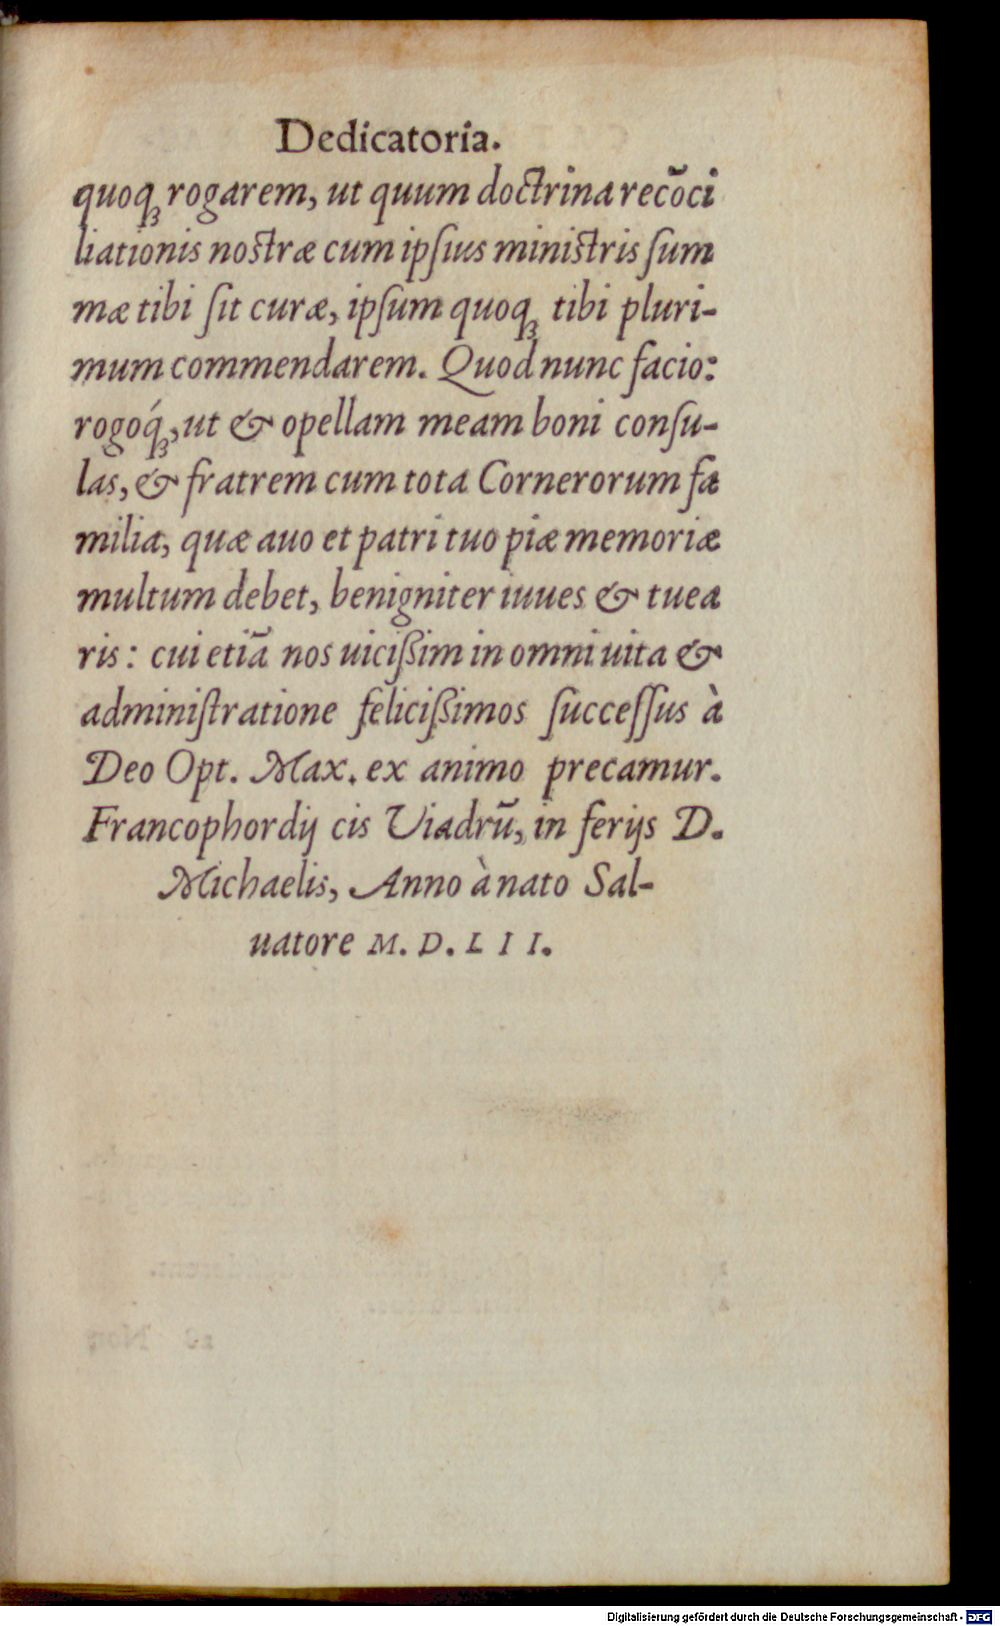 Dedicatoria.
quoqꝫ rogarem, ut quum doctrina recõci
liationis nostræ cum ipſius ministris ſum
mæ tibi ſit curæ, ipſum quoqꝫ tibi pluri-
mum commendarem. Quod nunc facio:
rogoq́ꝫ, ut & opellam meam boni conſu-
las, & fratrem cum tota Cornerorum fa
milia, quæ auo et patri tuo piæ memoriæ
multum debet, benigniter iuues & tuea
ris: cui etiã nos uicißim in omni uita &
adminiſtratione felicißimos ſucceſſus à
Deo Opt. Max. ex animo precamur.
Francophordij cis Viadrũ, in ferijs D.
Michaelis, Anno à nato Sal-
uatore M. D. L I I.
Digitalisierung gefördert durch die Deutsche Forschungsgemeinschaft - DFG